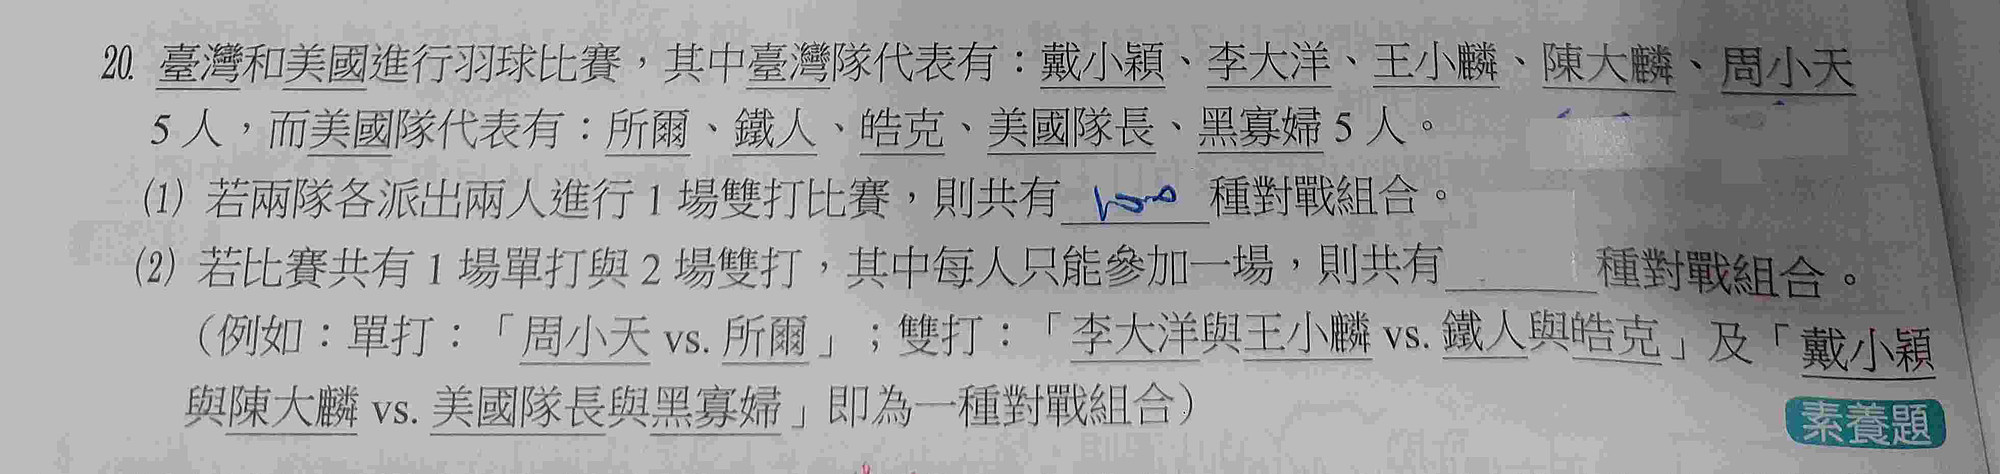 20. 臺灣和美國進行羽球比賽，其中臺灣隊代表有：戴小穎、李大洋、王小麟、陳大麟、周小天
5 人，而美國隊代表有：所爾、鐵人、皓克、美國隊長、黑寡婦 5 人。
(1) 若兩隊各派出兩人進行 1 場雙打比賽，則共有 100 種對戰組合。
(2) 若比賽共有 1 場單打與 2 場雙打，其中每人只能參加一場，則共有 種對戰組合。
（例如：單打：「周小天 vs. 所爾」；雙打：「李大洋與王小麟 vs. 鐵人與皓克」及「戴小穎
與陳大麟 vs. 美國隊長與黑寡婦」即為一種對戰組合）
素養題